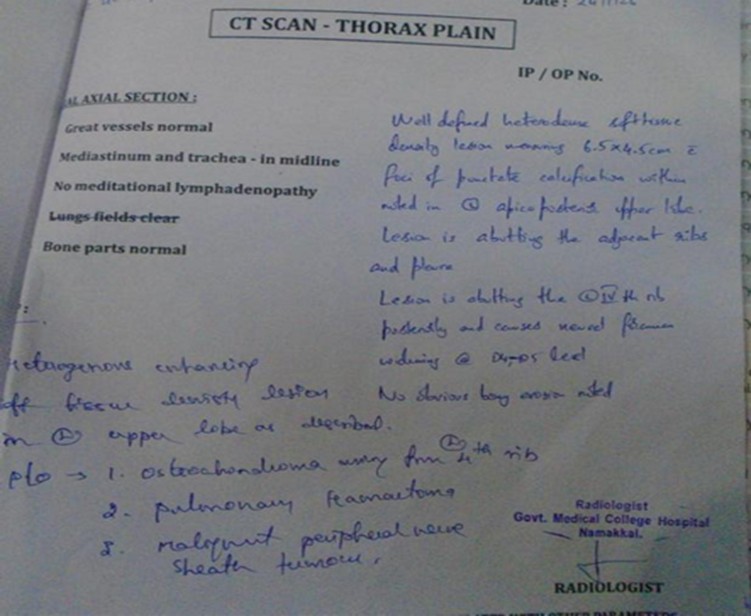 Date :
CT SCAN - THORAX PLAIN
IP / OP No.
AXIAL SECTION :
Great vessels normal
Mediastinum and trachea - in midline
No meditational lymphadenopathy
Lungs fields clear
Bone parts normal
Well defined heterodense soft tissue
density lesion measuring 6.5x4.5cm c̄
foci of punctate calcification within
noted in Ⓛ apicoposterior upper lobe.
Lesion is abutting the adjacent ribs
and pleura
Lesion is abutting the Ⓛ IV th rib
posteriorly and caused neural foramen
widening @ level
No obvious bony erosion noted
enhancing
tissue density lesion
in Ⓛ upper lobe as described.
P/o → 1. Osteochondroma from Ⓛ 4th rib
2. pulmonary Hamartoma
3. malignant peripheral nerve
sheath tumour.
Radiologist
Govt. Medical College Hospital
Namakkal.
RADIOLOGIST
WITH OTHER PARAMETERS